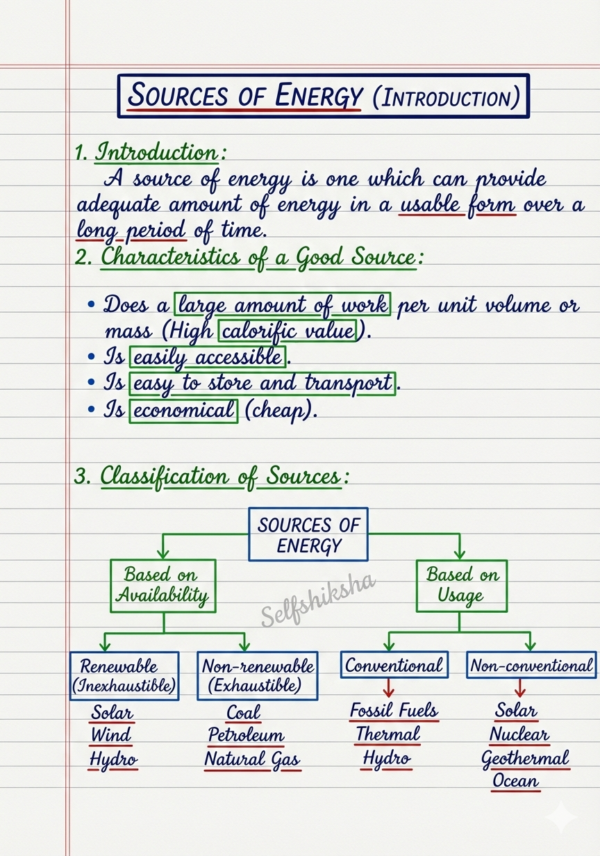 SOURCES OF ENERGY (INTRODUCTION)
1. Introduction:
A source of energy is one which can provide
adequate amount of energy in a usable form over a
long period of time.
2. Characteristics of a Good Source:
• Does a large amount of work per unit volume or
mass (High calorific value).
• Is easily accessible.
• Is easy to store and transport.
• Is economical (cheap).
3. Classification of Sources:
SOURCES OF
ENERGY
Based on
Availability
Based on
Usage
Selfshiksha
Renewable
(Inexhaustible)
Solar
Wind
Hydro
Non-renewable
(Exhaustible)
Coal
Petroleum
Natural Gas
Conventional
Fossil Fuels
Thermal
Hydro
Non-conventional
Solar
Nuclear
Geothermal
Ocean